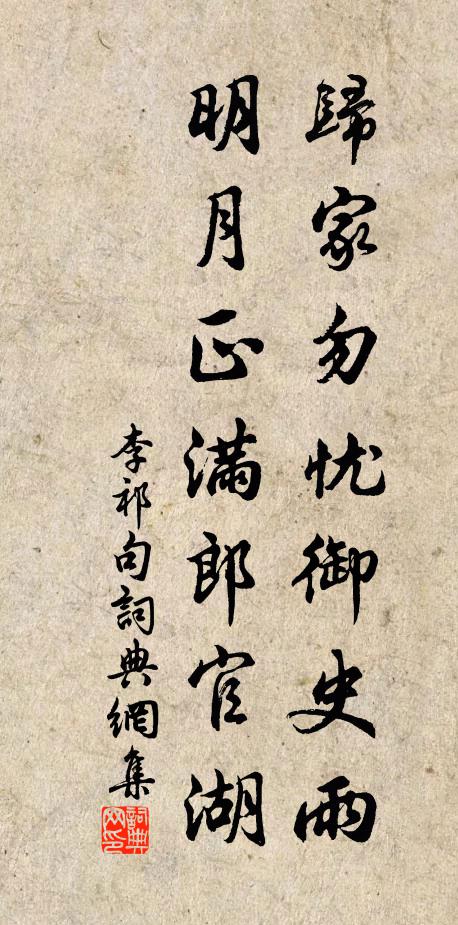 歸家勿忧御史雨
明月正滿郎官湖
李祁句詞典網集
詞典网印